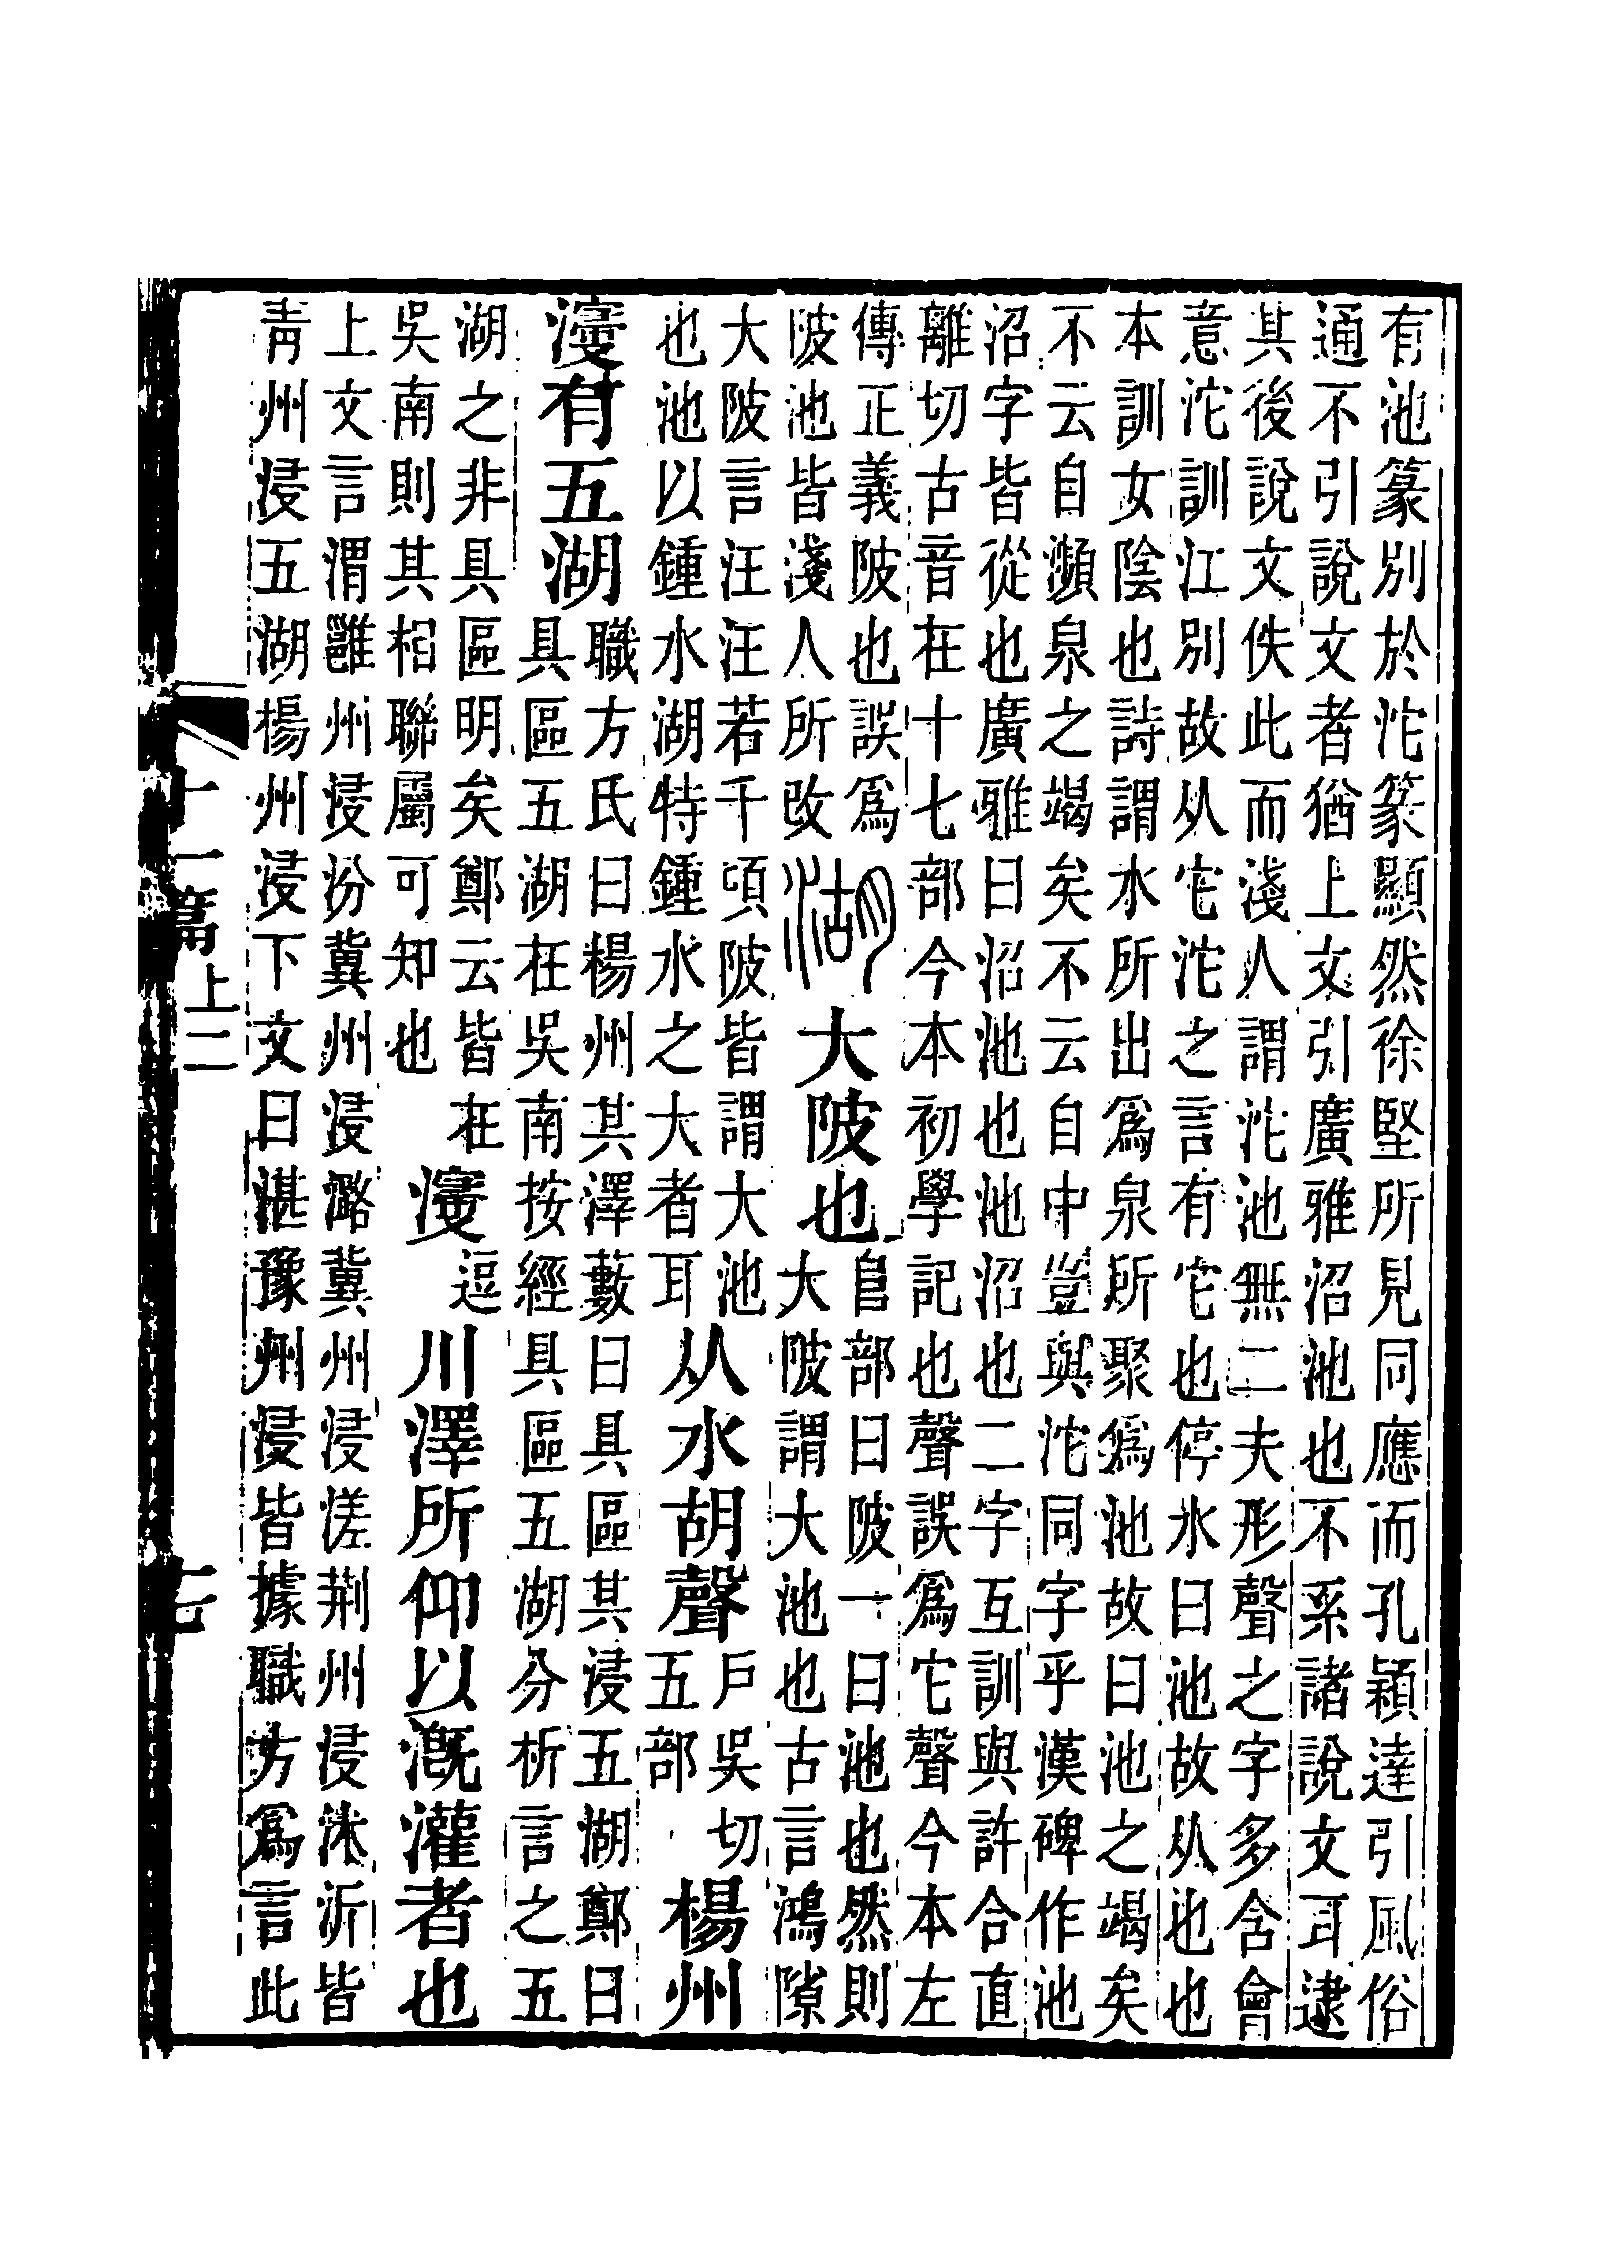 有池篆別於沱篆顯然徐堅所見同應而孔穎達引風俗
通不引說文者猶上文引廣雅沼池也不系諸說文耳逮
其後說文佚此而淺人謂沱池無二夫形聲之字多含會
意沱訓江別故从它沱之言有它也停水曰池故从也也
本訓女陰也詩謂水所出爲泉所聚爲池故曰池之竭矣
不云自瀕泉之竭矣不云自中豈與沱同字乎漢碑作池
沼字皆從也廣雅曰沼池也池沼也二字互訓與許合直
離切古音在十七部今本初學記也聲誤爲它聲今本左
傳正義陂也誤爲
陂池皆淺人所改
湖大陂也
𨸏部曰陂一曰池也然則
大陂謂大池也古言鴻隙
大陂言汪汪若千頃陂皆謂大池
也池以鍾水湖特鍾水之大者耳
从水胡聲
戶吳切
五部
楊州
濅有五湖
職方氏曰楊州其澤藪曰具區其浸五湖鄭曰
具區五湖在吳南按經具區五湖分析言之五
湖之非具區明矣鄭云皆在
吳南則其相聯屬可知也
濅
逗
川澤所仰以溉灌者也
上文言渭雝州浸汾冀州浸潞冀州浸溠荆州浸洙沂皆
靑州浸五湖楊州浸下文曰湛豫州浸皆據職方爲言此
十一篇上二
七